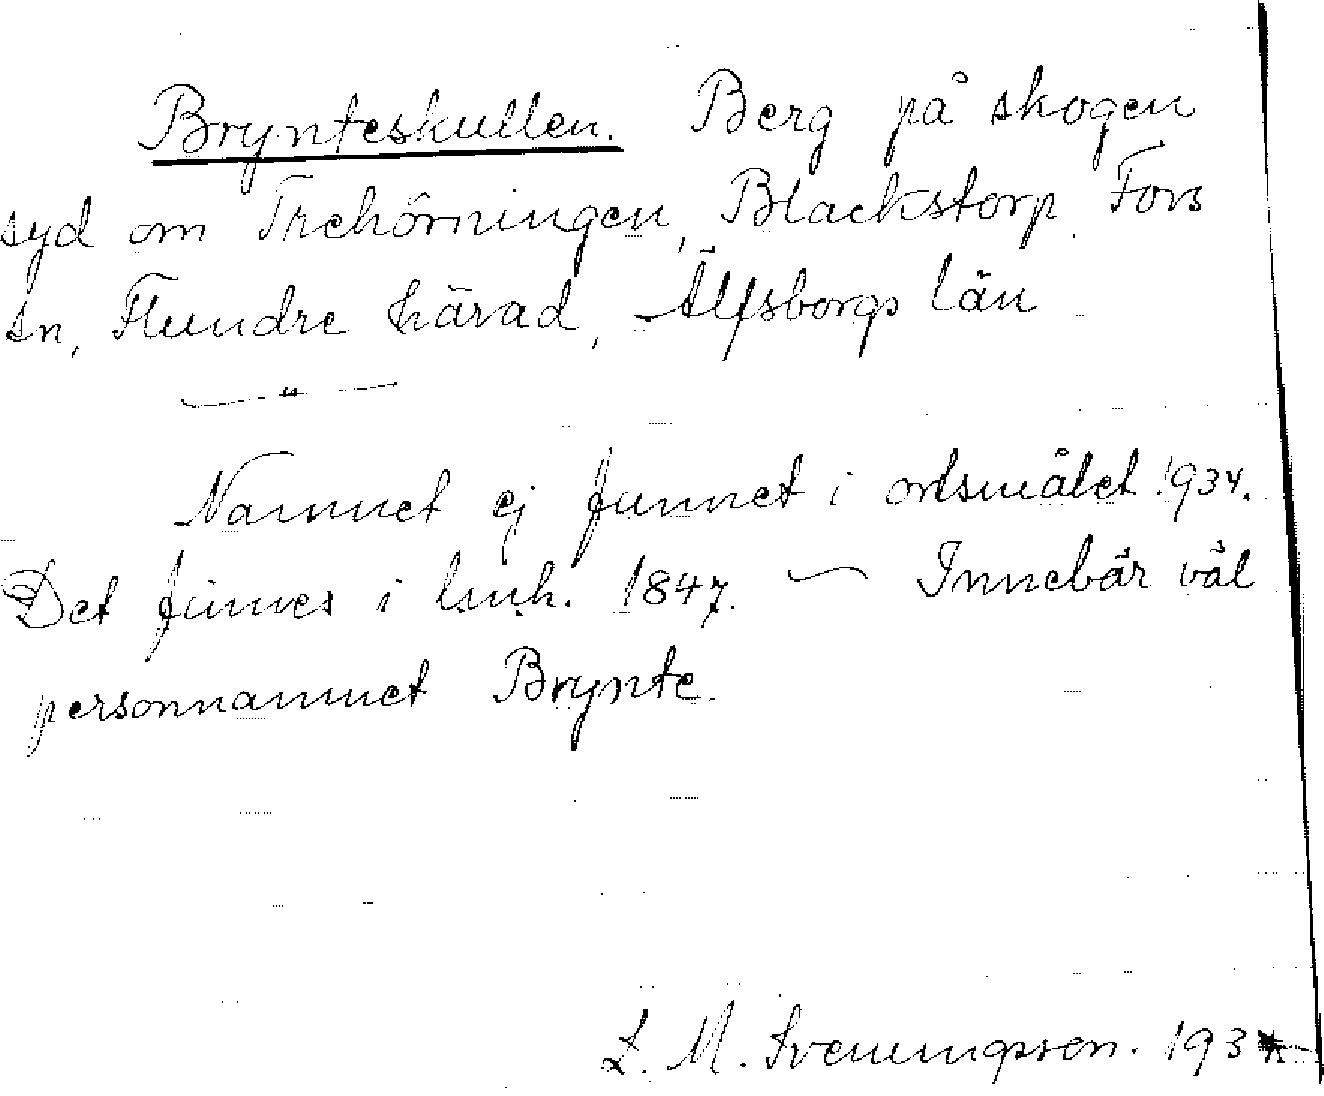 Brynteskullen. Berg på skogen
syd om Trehörningen, Blackstorp, Fors
sn, Flundre härad, Älfsborgs län
— " —
Namnet ej funnet i ortsmålet 1934.
Det finnes i lmh. 1847. — Innebär väl
personnamnet Brynte.
L. M. Svenungsson. 193